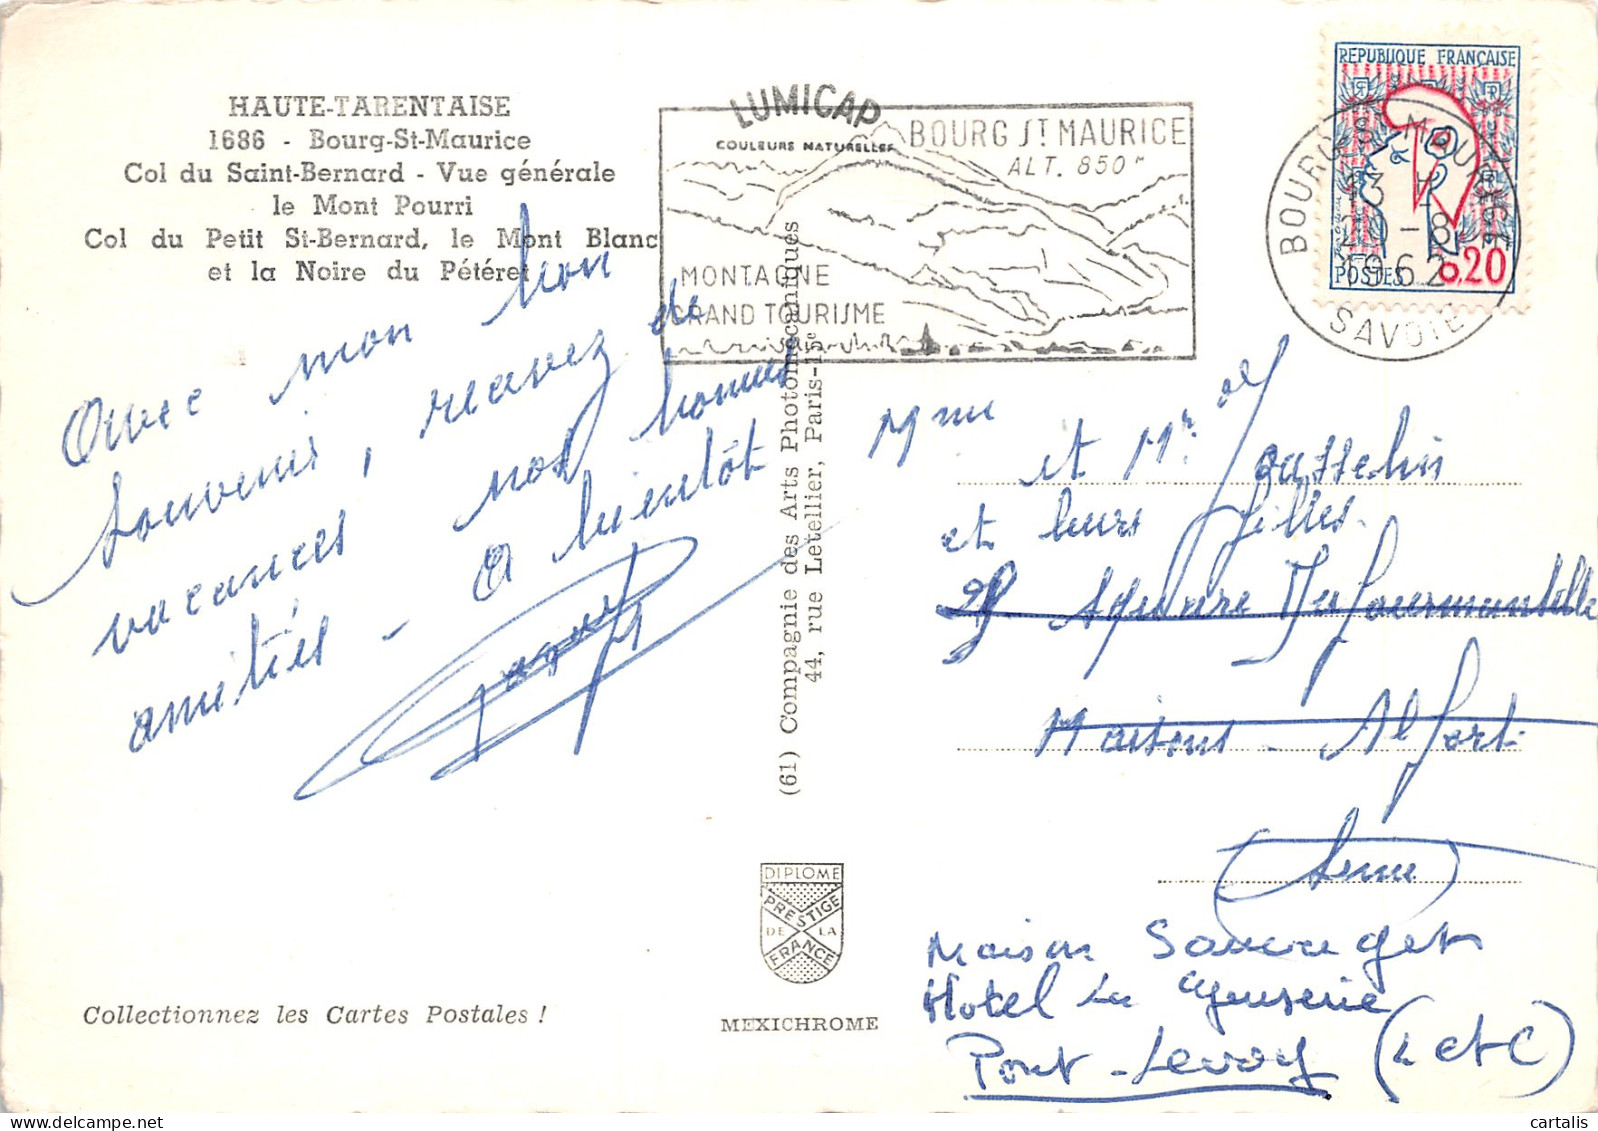 HAUTE-TARENTAISE
1686 - Bourg-St-Maurice
Col du Saint-Bernard - Vue générale
le Mont Pourri
Col du Petit St-Bernard, le Mont Blanc
et la Noire du Pétéret
LUMICAP
COULEURS NATURELLES
BOURG ST MAURICE
ALT. 850 m
MONTAGNE
GRAND TOURISME
REPUBLIQUE FRANÇAISE
POSTES 0,20
BOURG-ST-MAURICE
13 H
20 - 8
1962
SAVOIE
Avec mon bon
souvenir, recevez de
vacances nos bonnes
amitiés - A bientôt
(61) Compagnie des Arts Photomécaniques
44, rue Letellier, Paris-15e
Mme et Mr
et leurs filles.
Square
Maisons-Alfort
(Seine)
Maison Sauvaget
Hotel La
Pont-Levoy (L et C)
DIPLOME
PRESTIGE
DE LA
FRANCE
MEXICHROME
Collectionnez les Cartes Postales !
cartalis